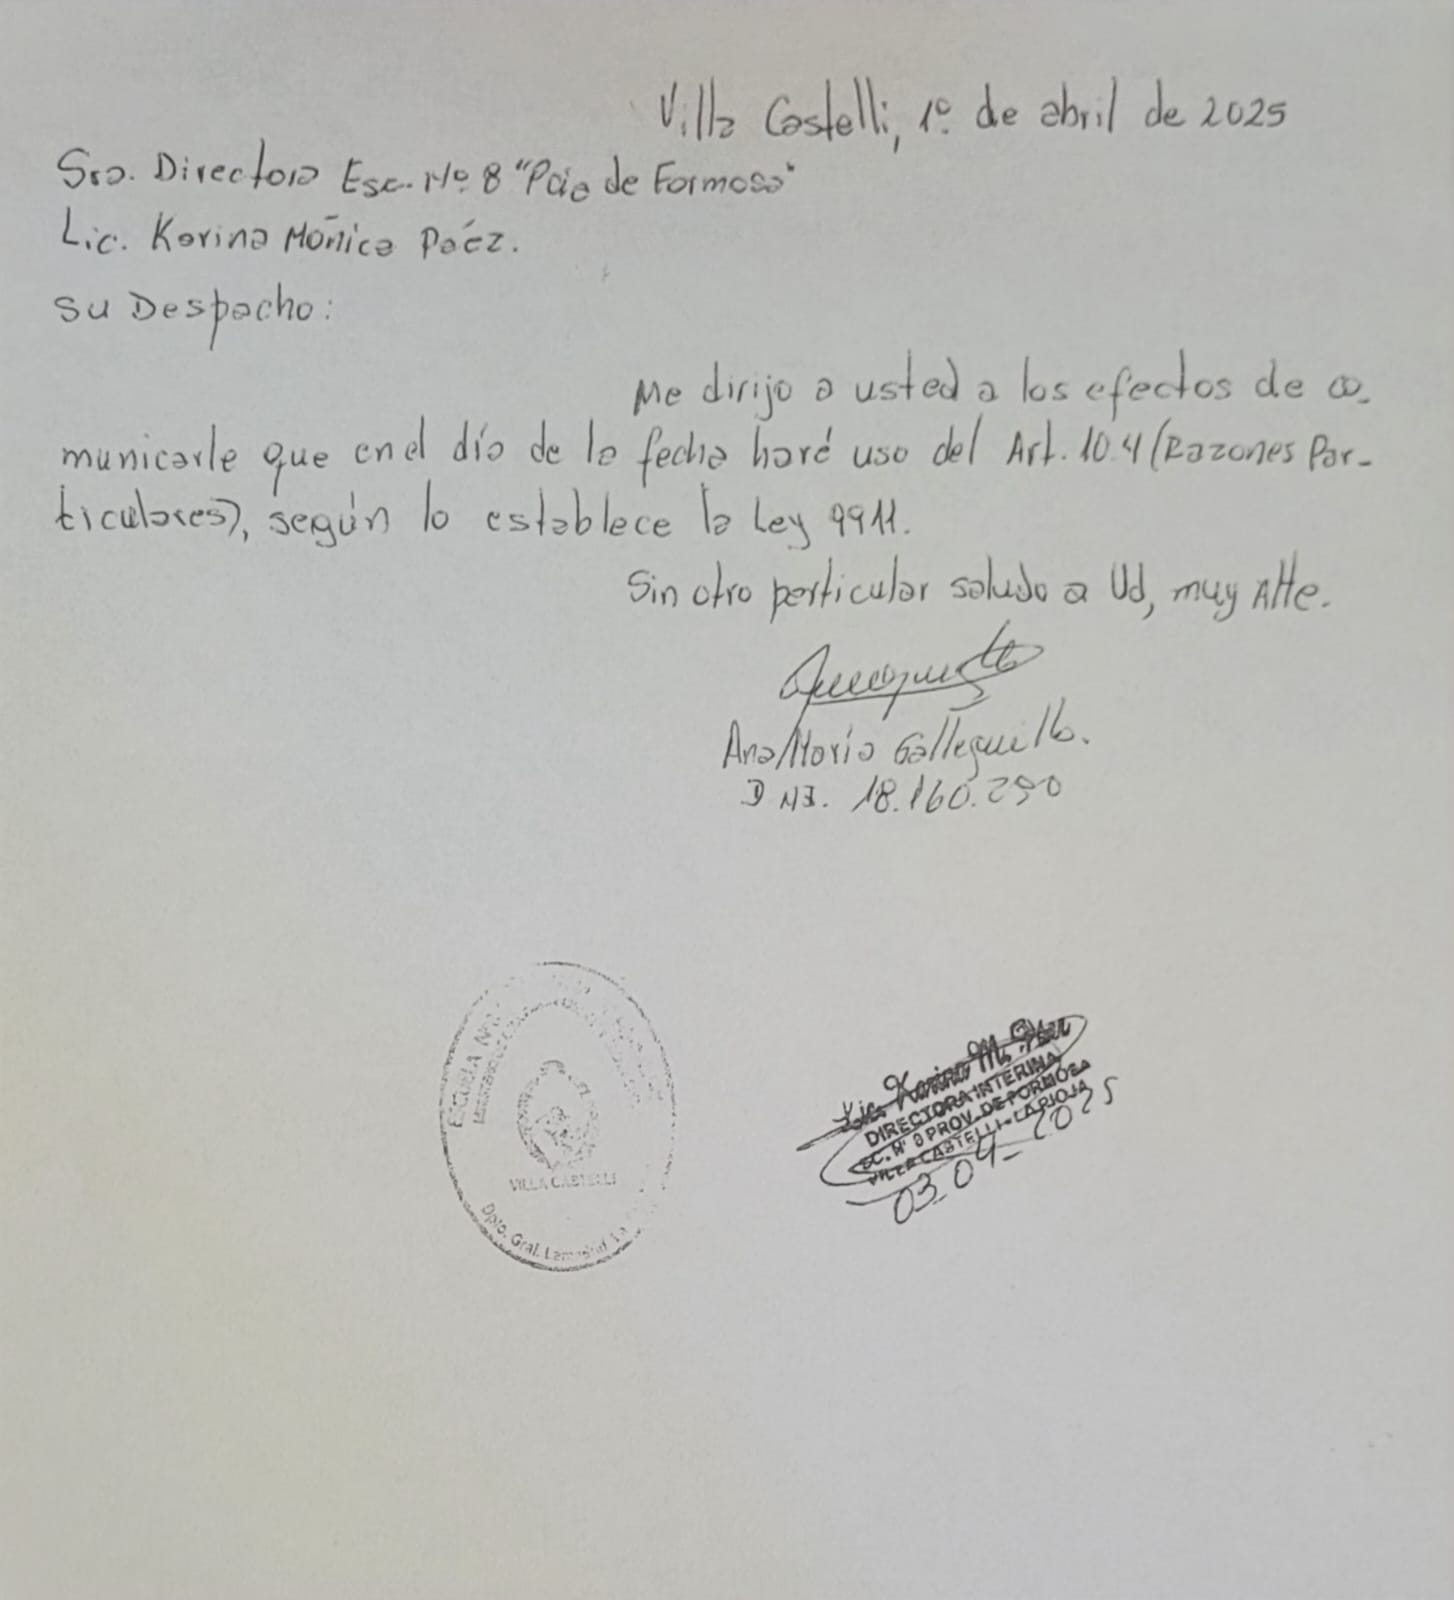 Villa Castelli, 1º de abril de 2025
Sra. Directora Esc. Nº 8 "Pcia de Formosa"
Lic. Karina Mónica Paéz.
Su Despacho:
Me dirijo a usted a los efectos de co-
municarle que en el día de la fecha haré uso del Art. 10.4 (Razones Par-
ticulares), según lo establece la Ley 9911.
Sin otro particular saludo a Ud, muy Atte.
Ana María Galleguillo.
DNI. 18.160.290
ESCUELA Nº
VILLA CASTELLI
Dpto. Gral. Lamadrid
Lic. Karina M. Páez
DIRECTORA INTERINA
ESC. Nº 8 PROV. DE FORMOSA
VILLA CASTELLI - LA RIOJA
03-04-2025